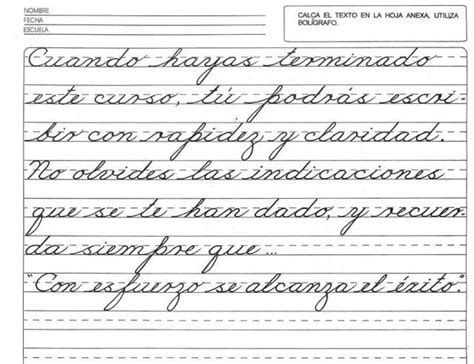 NOMBRE
FECHA
ESCUELA
CALCA EL TEXTO EN LA HOJA ANEXA, UTILIZA
BOLÍGRAFO.
Cuando hayas terminado
este curso, tú podrás escri-
bir con rapidez y claridad.
No olvides las indicaciones
que se te han dado, y recuer-
da siempre que...
"Con esfuerzo se alcanza el éxito".